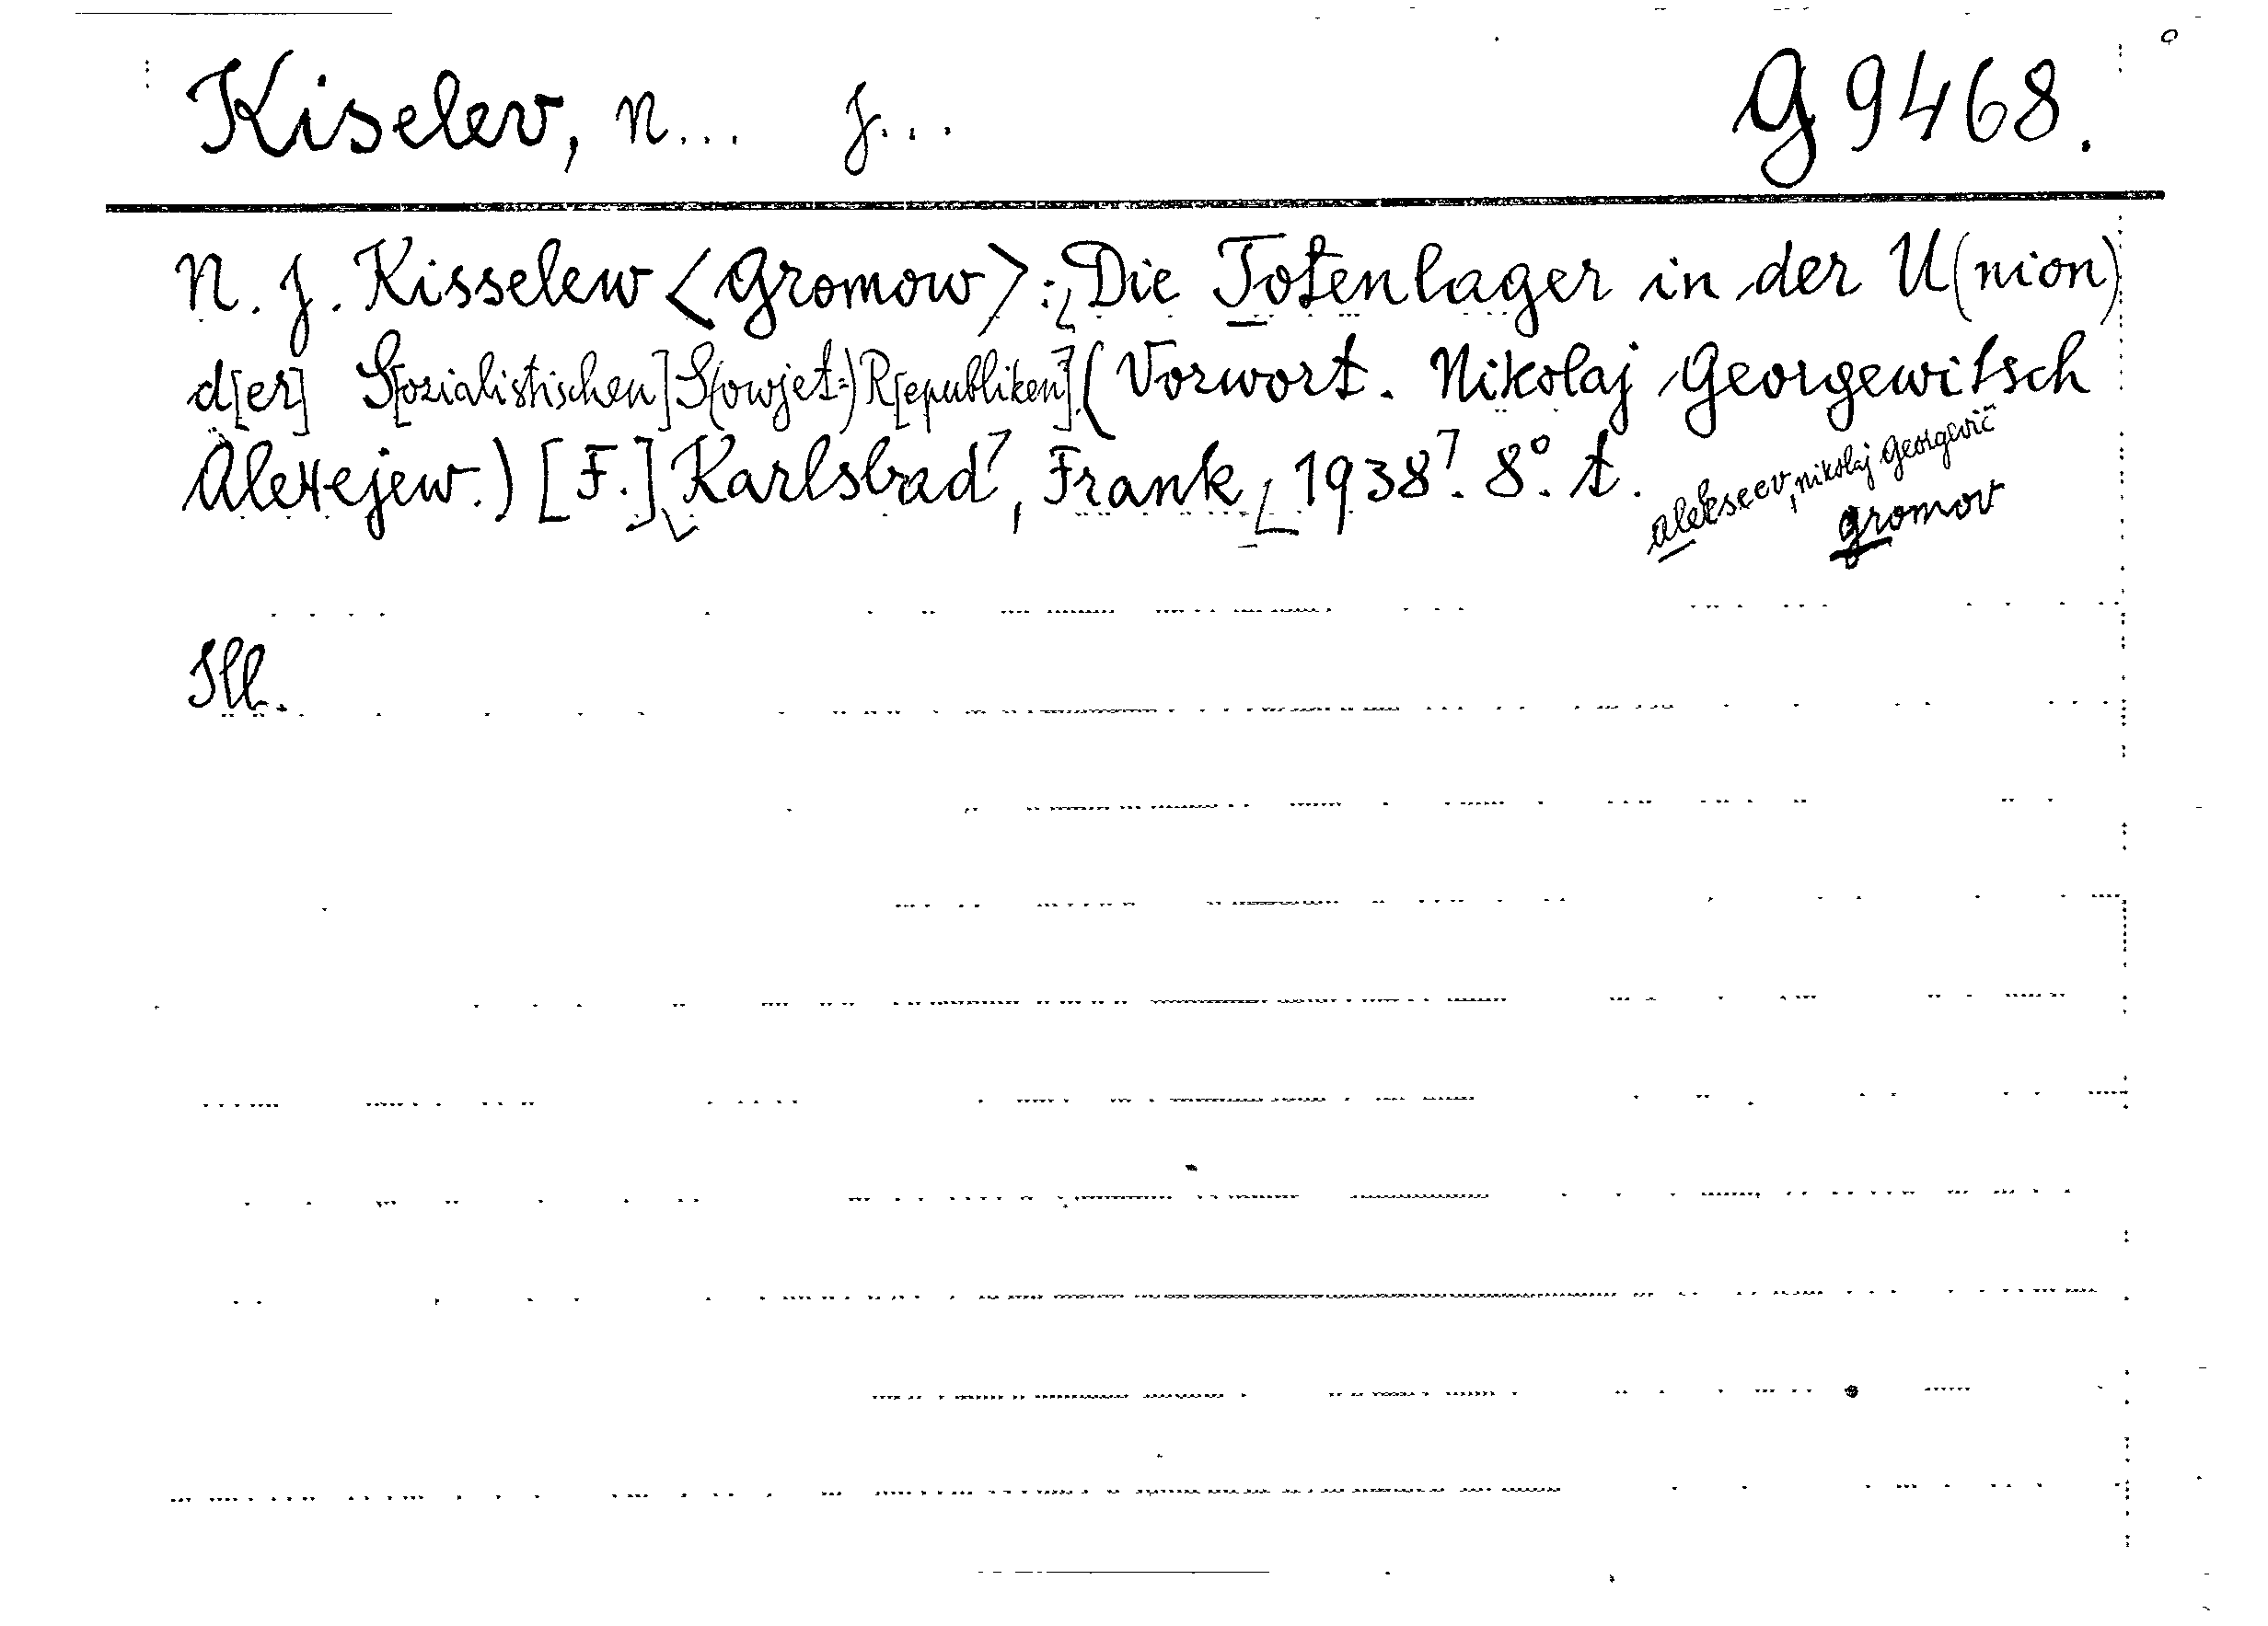 Kiselev, N... J... G 9468.
N. J. Kisselew <Gromow>: Die Totenlager in der U(nion)
d[er] S[ozialistischen] S(owjet=)R[epubliken]. (Vorwort. Nikolaj Georgewitsch
Alexejew.) [F.] Karlsbad, Frank [1938]. 8°. A.
Alekseev, Nikolaj Georgevič
Gromov
Ill.